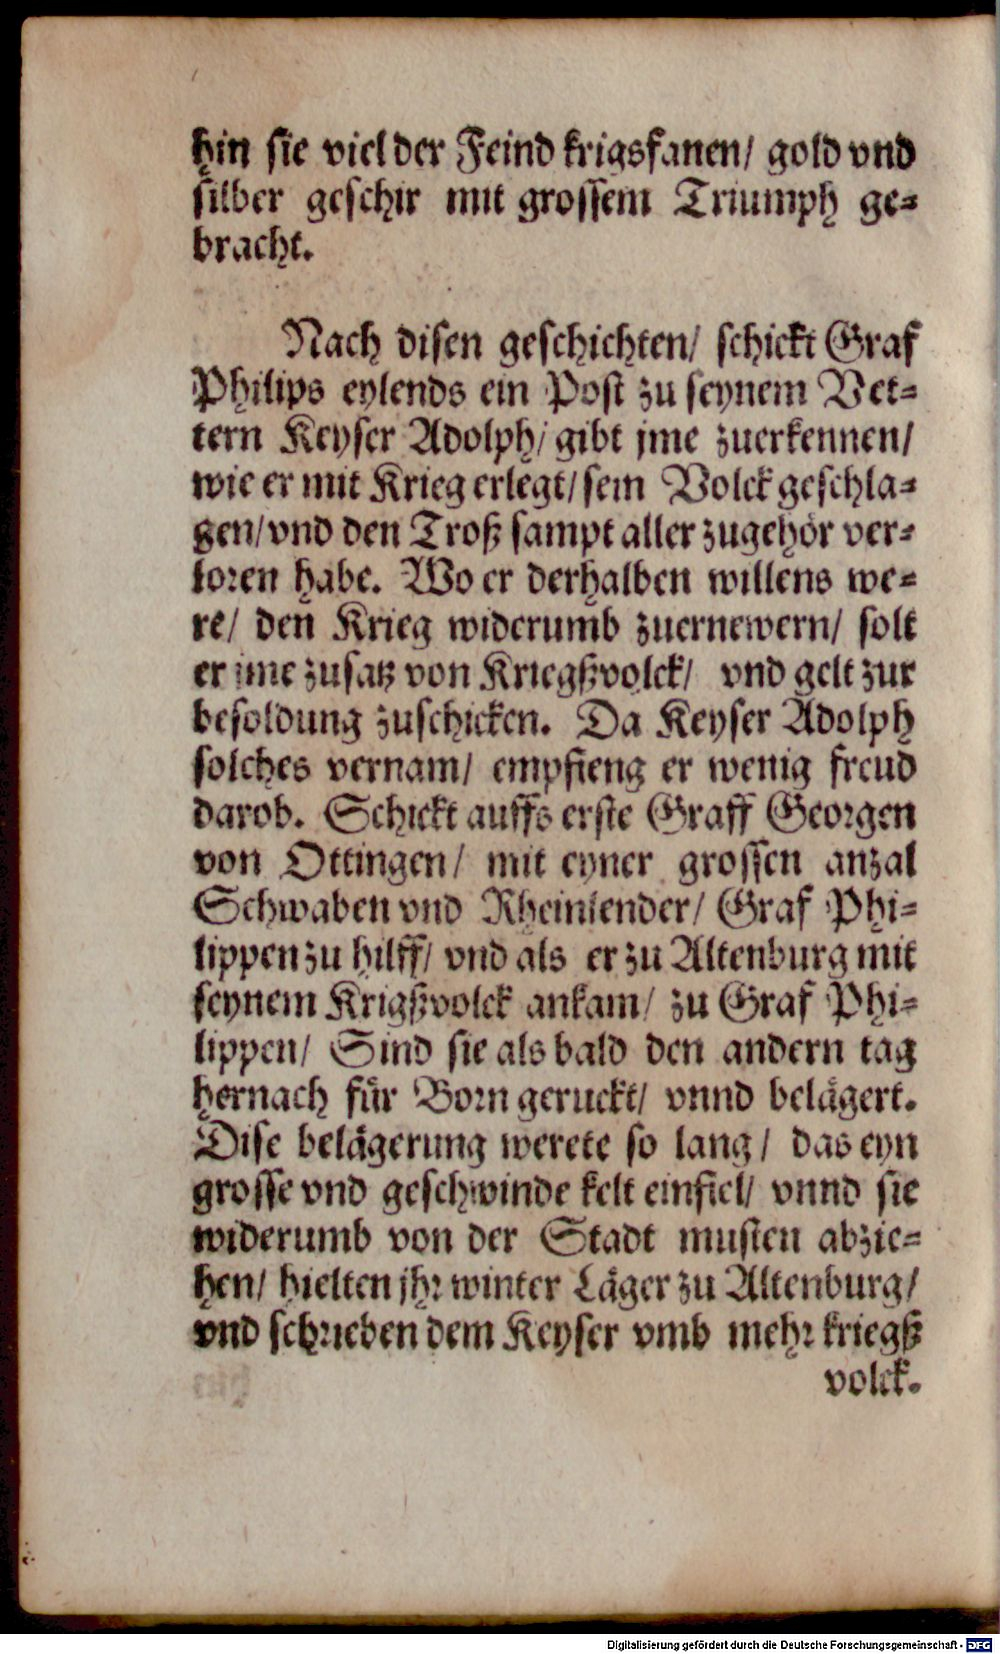 hin sie viel der Feind krigsfanen/ gold vnd
silber geschir mit grossem Triumph ge⸗
bracht.
Nach disen geschichten/ schickt Graf
Philips eylends ein Post zu seynem Vet⸗
tern Keyser Adolph/ gibt jme zuerkennen/
wie er mit Krieg erlegt/ sein Volck geschla⸗
gen/ vnd den Troß sampt aller zugehör ver⸗
loren habe. Wo er derhalben willens we⸗
re/ den Krieg widerumb zuernewern/ solt
er jme zusatz von Kriegßvolck/ vnd gelt zur
besoldung zuschicken. Da Keyser Adolph
solches vernam/ empfieng er wenig freud
darob. Schickt auffs erste Graff Georgen
von Ottingen/ mit eyner grossen anzal
Schwaben vnd Rheinlender/ Graf Phi⸗
lippen zu hilff/ vnd als er zu Altenburg mit
seynem Krigßvolck ankam/ zu Graf Phi⸗
lippen/ Sind sie als bald den andern tag
hernach für Born geruckt/ vnnd belägert.
Dise belägerung werete so lang/ das eyn
grosse vnd geschwinde kelt einfiel/ vnnd sie
widerumb von der Stadt musten abzie⸗
hen/ hielten jhr winter Läger zu Altenburg/
vnd schrieben dem Keyser vmb mehr kriegß
volck.
Digitalisierung gefördert durch die Deutsche Forschungsgemeinschaft - DFG